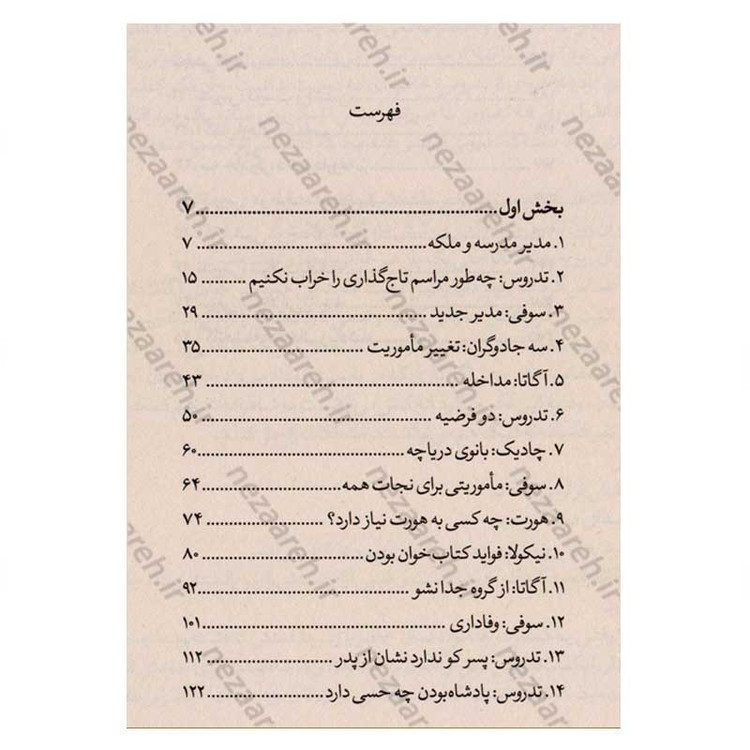 فهرست
بخش اول..................................................۷
۱. مدیر مدرسه و ملکه.................................۷
۲. تدروس: چه‌طور مراسم تاج‌گذاری را خراب نکنیم..........۱۵
۳. سوفی: مدیر جدید.................................۲۹
۴. سه جادوگران: تغییر مأموریت.......................۳۵
۵. آگاتا: مداخله....................................۴۳
۶. تدروس: دو فرضیه.................................۵۰
۷. چادیک: بانوی دریاچه..............................۶۰
۸. سوفی: مأموریتی برای نجات همه.....................۶۴
۹. هورت: چه کسی به هورت نیاز دارد؟..................۷۴
۱۰. نیکولا: فواید کتاب خوان بودن.....................۸۰
۱۱. آگاتا: از گروه جدا نشو...........................۹۲
۱۲. سوفی: وفاداری..................................۱۰۱
۱۳. تدروس: پسر کو ندارد نشان از پدر................۱۱۲
۱۴. تدروس: پادشاه‌بودن چه حسی دارد.................۱۲۲
nezaareh.ir